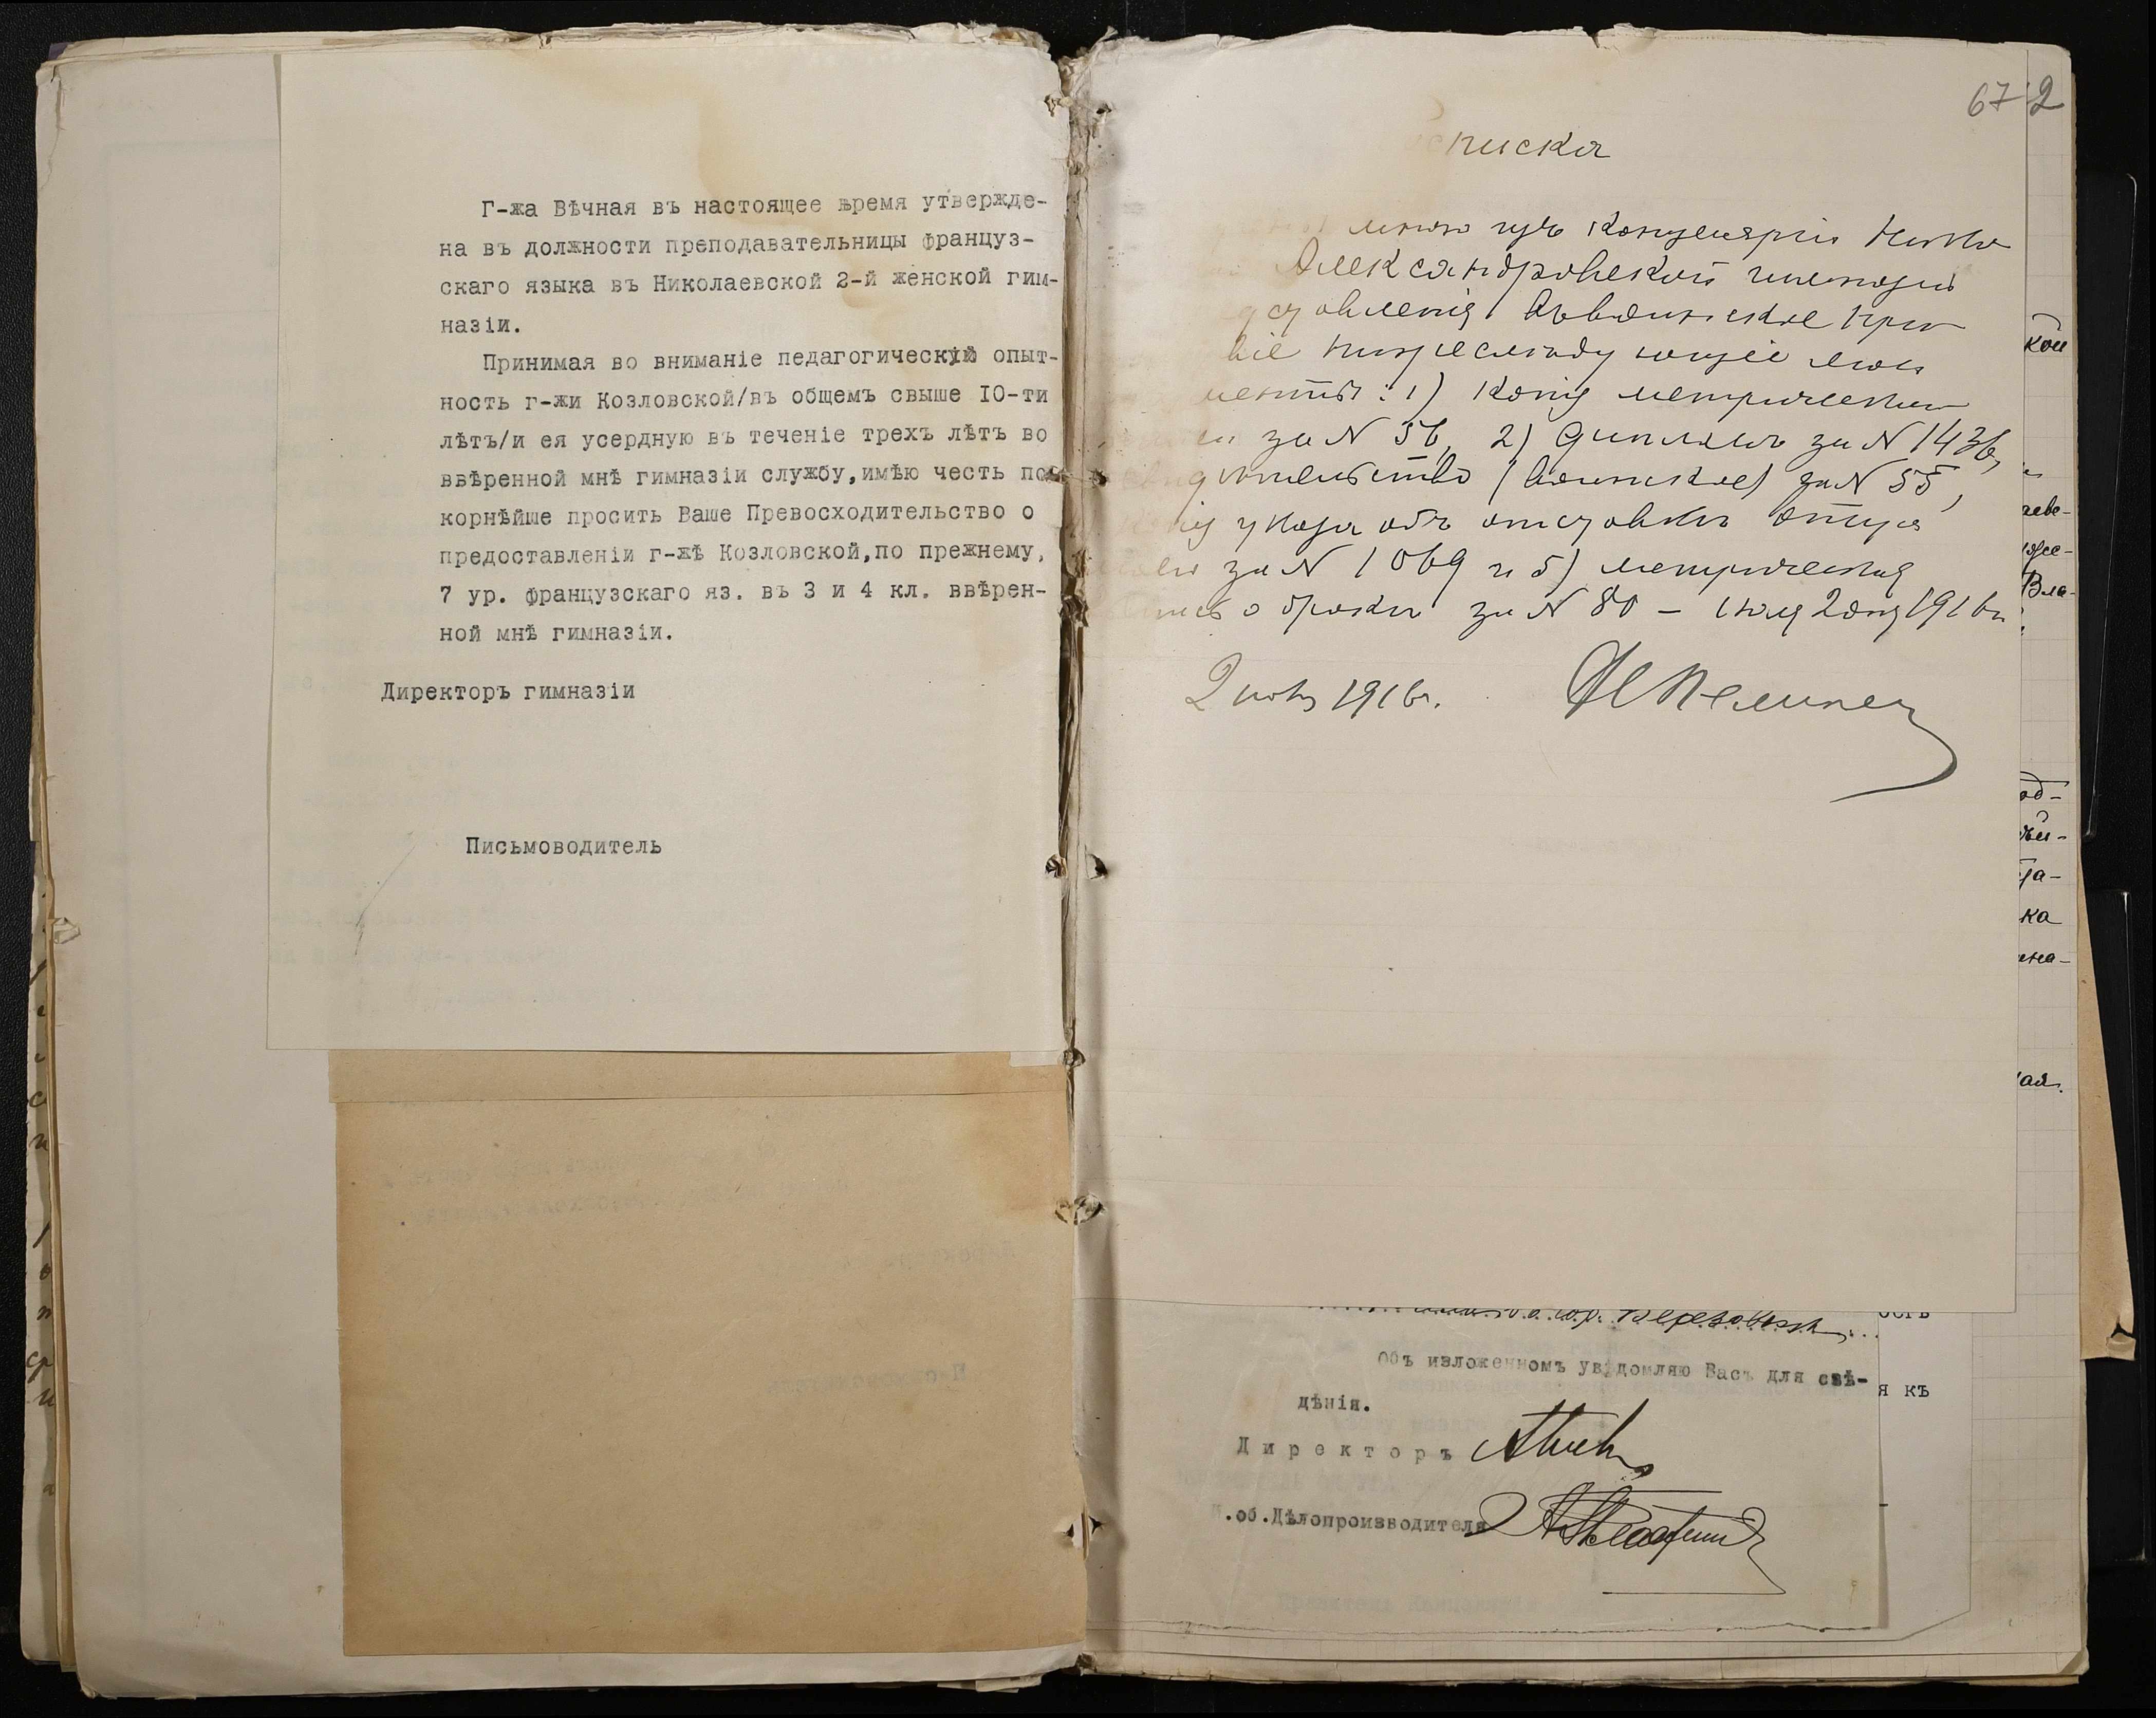 Г-жа Вѣчная въ настоящее время утвержде-
на въ должности преподавательницы француз-
скаго языка въ Николаевской 2-й женской гим-
назіи.
Принимая во вниманіе педагогическую опыт-
ность г-жи Козловской/въ общемъ свыше 10-ти
лѣтъ/и ея усердную въ теченіе трехъ лѣтъ во
ввѣренной мнѣ гимназіи службу,имѣю честь по-
корнѣйше просить Ваше Превосходительство о
предоставленіи г-жѣ Козловской,по прежнему,
7 ур. французскаго яз. въ 3 и 4 кл. ввѣрен-
ной мнѣ гимназіи.
Директоръ гимназіи
Письмоводитель
67 2
списка
мною изъ Канцеляріи
Александровской гимназіи
ставленія въ воинское при
віе нижеслѣдующіе доку
менты: 1) копія метрическ
за N 56, 2) дипломъ за N 1436,
свидѣтельство (воинское) за N 55,
копія указа объ отставкѣ отца
за N 1069 и 5) метрическая
о бракѣ за N 80 – іюня 2 дня 1916 г.
2 іюня 1916 г.
кой
аеве-
Вла-
од-
ка
ная.
ость
Объ изложенномъ увѣдомляю Васъ для свѣ-
дѣнія.
я къ
Директоръ
И.об.Дѣлопроизводителя